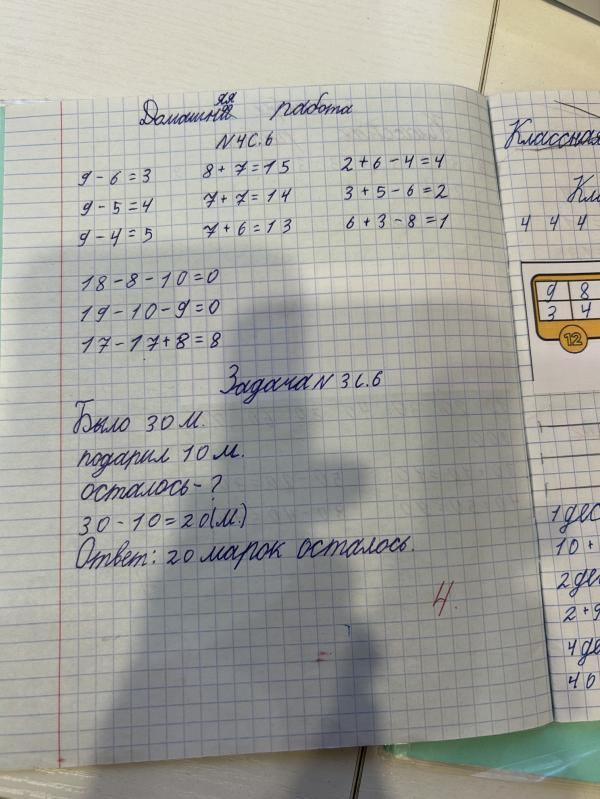 Домашняя работа
N 4 С. 6
9 - 6 = 3 8 + 7 = 15 2 + 6 - 4 = 4
9 - 5 = 4 7 + 7 = 14 3 + 5 - 6 = 2
9 - 4 = 5 7 + 6 = 13 6 + 3 - 8 = 1
18 - 8 - 10 = 0
19 - 10 - 9 = 0
17 - 17 + 8 = 8
Задача N 3 С. 6
Было 30 м.
подарил 10 м.
осталось - ?
30 - 10 = 20 (м.)
Ответ: 20 марок осталось.
4.
Классная
Кла
4 4 4
9 8
3 4
12
1 дес
10 +
2 дес
2 + 9
4 де
40